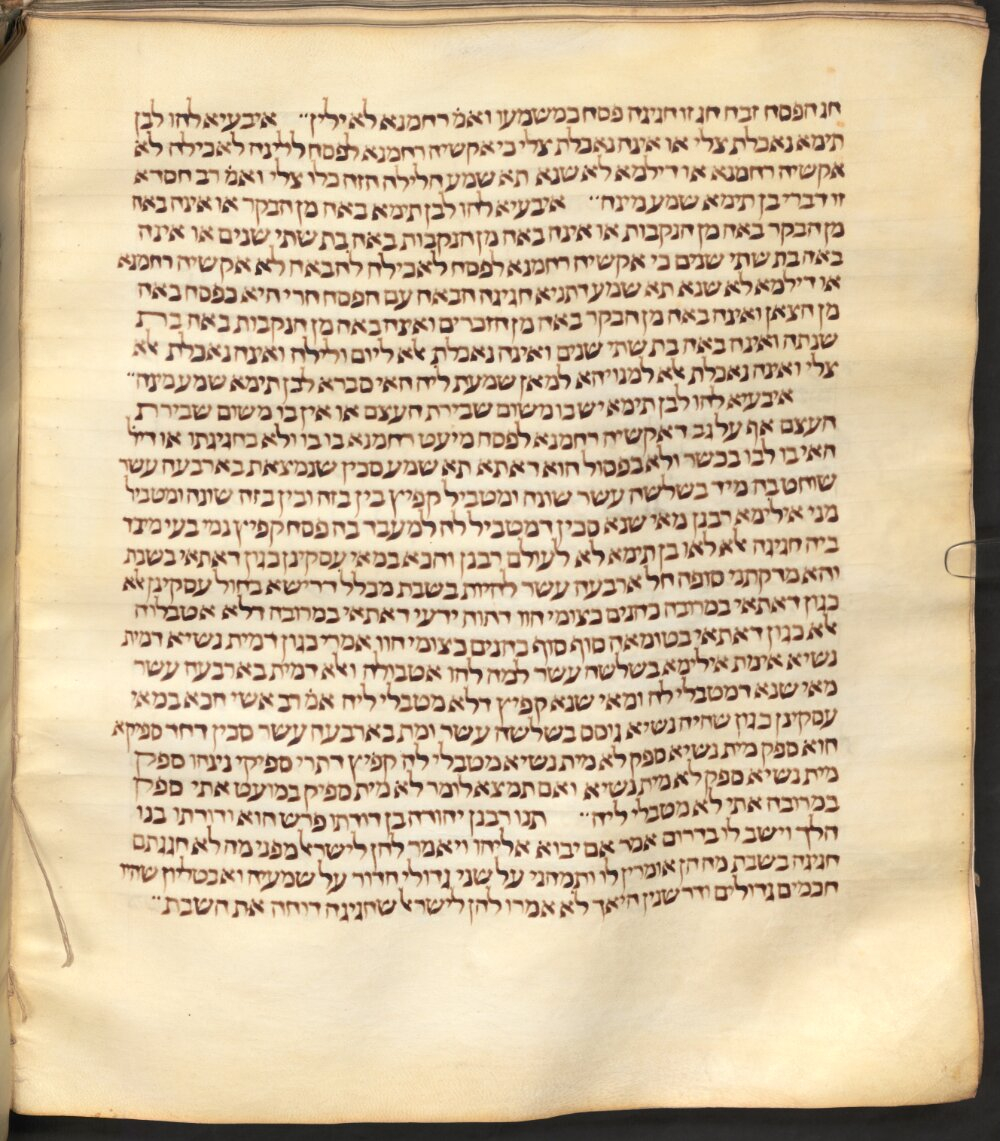 חג הפסח זבח חג זו חגיגה פסח כמשמעו ואמ׳ רחמנא לא ילין׃ איבעיא להו לבן
תימא נאכלת צלי או אינה נאכלת צלי כי אקשיה רחמנא לפסח ללינה לאכילה לא
אקשיה רחמנא או דילמא לא שנא תא שמע הלילה הזה כלו צלי ואמ׳ רב חסדא
זו דברי בן תימא שמע מינה׃ איבעיא להו לבן תימא באה מן הבקר או אינה באה
מן הבקר באה מן הנקבות או אינה באה מן הנקבות באה בת שתי שנים או אינה
באה בת שתי שנים כי אקשיה רחמנא לפסח לאכילה להבאה לא אקשיה רחמנא
או דילמא לא שנא תא שמע דתניא חגיגה הבאה עם הפסח הרי היא כפסח באה
מן הצאן ואינה באה מן הבקר באה מן הזכרים ואינה באה מן הנקבות באה בת
שנתה ואינה באה בת שתי שנים ואינה נאכלת אלא ליום ולילה ואינה נאכלת אלא
צלי ואינה נאכלת אלא למנויהא למאן שמעת ליה האי סברא לבן תימא שמע מינה׃
איבעיא להו לבן תימא יש בו משום שבירת העצם או אין בו משום שבירת
העצם אף על גב דאקשיה רחמנא לפסח מיעט רחמנא בו בו ולא בחגיגתו או דיל׳
האי בו לבו בכשר ולא בפסול הוא דאתא תא שמע סכין שנמצאת בארבעה עשר
שוחט בה מיד בשלשה עשר שונה ומטביל קפיץ בין בזה ובין בזה שונה ומטביל
מני אילימא רבנן מאי שנא סכין דמטביל לה למעבד בה פסח קפיץ נמי בעי מיגד
ביה חגיגה אלא לאו בן תימא לא לעולם רבנן והכא במאי עסקינן כגון דאתאי בשבת
והא מדקתני סופה חל ארבעה עשר להיות בשבת מכלל דרישא בחול עסקינן אלא
כגון דאתאי במרובה כהנים בצומי הוו דהוה ידעי דאתאי במרובה דלא אטבלוה
אלא כגון דאתאי בטומאה סוף סוף כהנים בצומי הוו אמרי כגון דמית נשיא דמית
נשיא אימת אילימא בשלשה עשר למה להו אטבולה ואלא דמית בארבעה עשר
מאי שנא דמטבלי לה ומאי שנא קפיץ דלא מטבלי ליה אמ׳ רב אשי הכא במאי
עסקינן כגון שהיה נשיא גוסס בשלשה עשר ומת בארבעה עשר סכין דחד ספיקא
הוא ספק מית נשיא ספק לא מית נשיא מטבלי לה קפיץ דתרי ספיקי נינהו ספק
מית נשיא ספק לא מית נשיא ואם תמצא לומר לא מית ספיק במועט אתי ספק
במרובה אתי לא מטבלי ליה׃ תנו רבנן יהודה בן דודתו פרש הוא ודודתו בנו
הלך וישב לו בדרום אמר אם יבוא אליהו ויאמר להן לישראל מפני מה לא חגגתם
חגיגה בשבת מה הן אומרין לו ותמהני על שני גדולי הדור על שמעיה ואבטליון שהיו
חכמים גדולים ודרשנין היאך לא אמרו להן לישראל שחגיגה דוחה את השבת׃